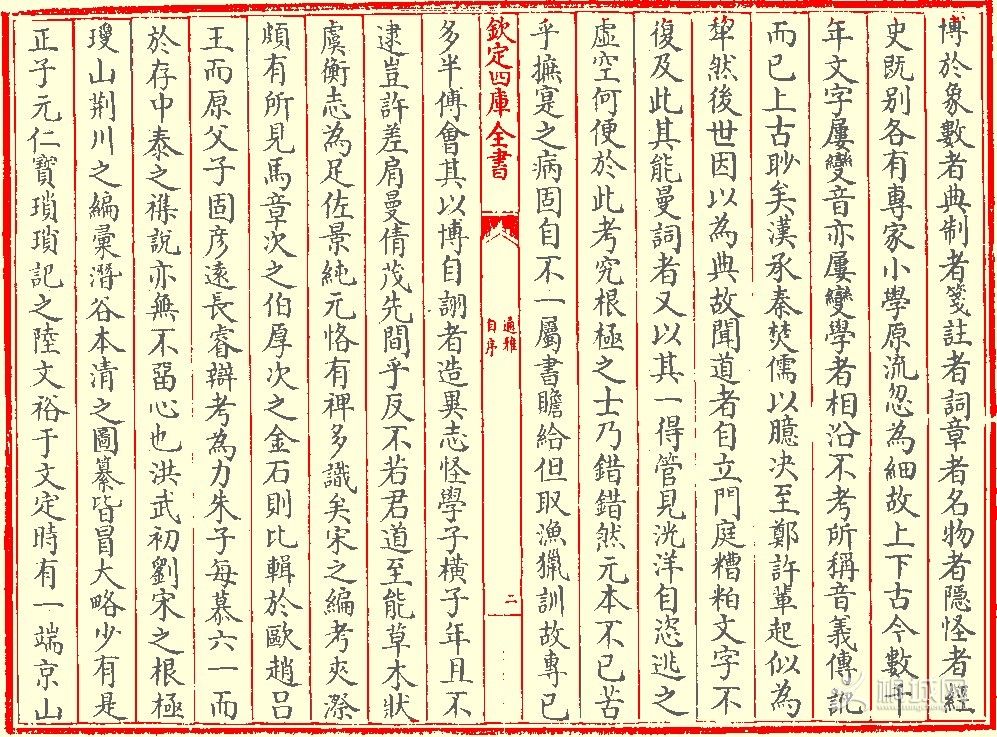 博於象數者典制者箋註者詞章者名物者隱怪者經
史既别各有專家小學原流忽為細故上下古今數千
年文字屢變音亦屢變學者相沿不考所稱音義傳訛
而已上古眇矣漢承秦焚儒以臆决至鄭許輩起似為
犂然後世因以為典故聞道者自立門庭糟粕文字不
復及此其能曼詞者又以其一得管見洸洋自恣逃之
虛空何便於此考究根極之士乃錯錯然元本不已苦
乎摭寔之病固自不一屬書贍給但取漁獵訓故專已
欽定四庫全書
通雅
自序
二
多半傅會其以博自詡者造異志怪學子橫子年且不
逮豈許差肩曼倩茂先間乎反不若君道至能草木狀
虞衡志為足佐景純元恪有裨多識矣宋之編考夾漈
頗有所見馬章次之伯厚次之金石則比輯於歐趙吕
王而原父子固彦逺長睿辯考為力朱子每慕六一而
於存中泰之襍說亦無不畱心也洪武初劉宋之根極
瓊山荆川之編彚潛谷本清之圖纂皆冒大略少有是
正子元仁寶瑣瑣記之陸文裕于文定時有一端京山
桐城网